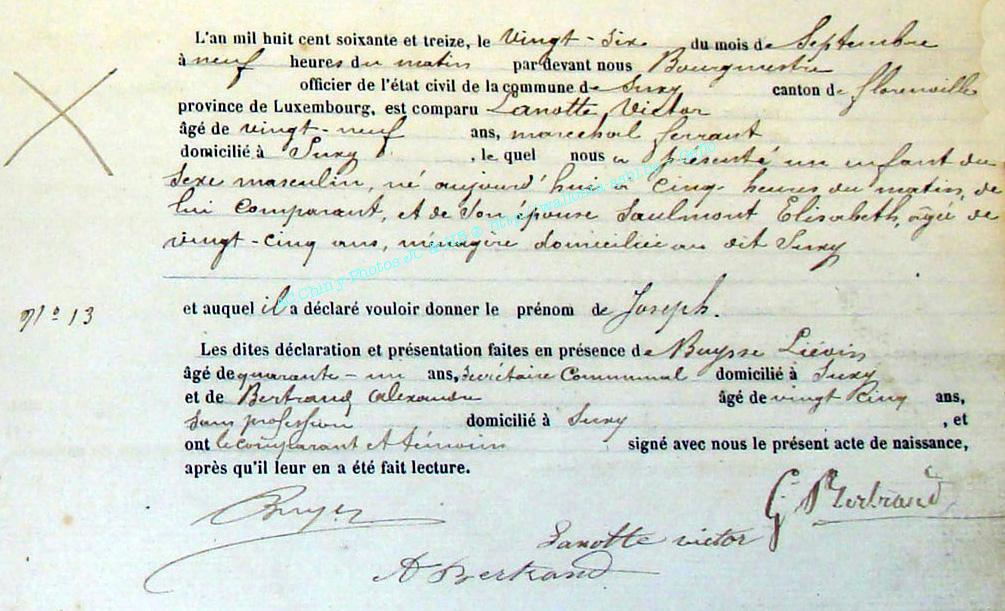 L'an mil huit cent soixante et treize, le vingt-six du mois de Septembre
à neuf heures du matin par devant nous Bourgmestre
officier de l'état civil de la commune de Suxy canton de florenville
province de Luxembourg, est comparu Lanotte Victor
âgé de vingt-neuf ans, marechal ferrant
domicilié à Suxy, le quel nous a présenté un enfant du
sexe masculin, né aujourd'hui à cinq heures du matin, de
lui comparant, et de son épouse Saulmont Elisabeth, agée de
vingt-cinq ans, ménagère domiciliée au dit Suxy
N° 13
et auquel il a déclaré vouloir donner le prénom de Joseph.
Les dites déclaration et présentation faites en présence de Buysse Liévin
âgé de quarante-un ans, secrétaire communal domicilié à Suxy
et de Bertrand Alexandre âgé de vingt cinq ans,
sans profession domicilié à Suxy, et
ont le comparant et témoins signé avec nous le présent acte de naissance,
après qu'il leur en a été fait lecture.
G Bertrand
Lanotte victor
A Bertrand